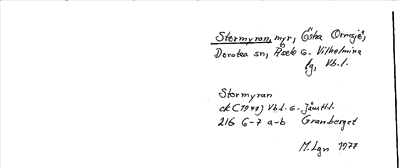 Stormyran, myr, Östra Ormsjö,
Dorotea sn, Åsele o. Vilhelmina
lg, Vb.l.
Stormyran
ek (1977) Vb.l. o. Jämtl.
21G 6-7 a-b Granberget
M.Lgn 1977